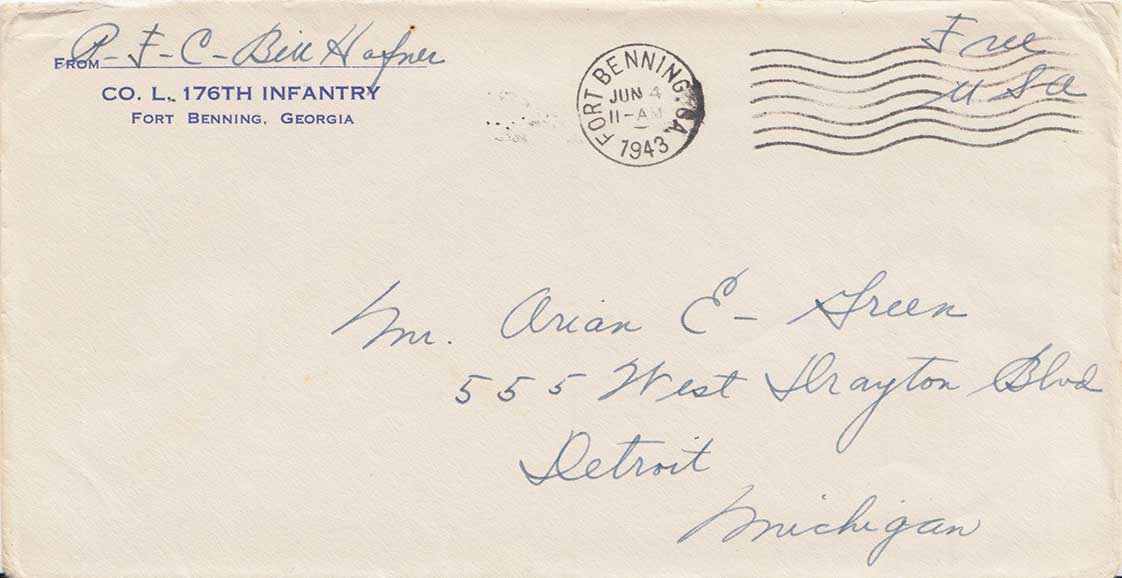 FROM P-F-C-Bill Hafner
CO. L. 176TH INFANTRY
FORT BENNING, GEORGIA
FORT BENNING, GA.
JUN 4
11-AM
1943
Free
USA
Mr. Arian E- Green
555 West Drayton Blvd
Detroit
Michigan